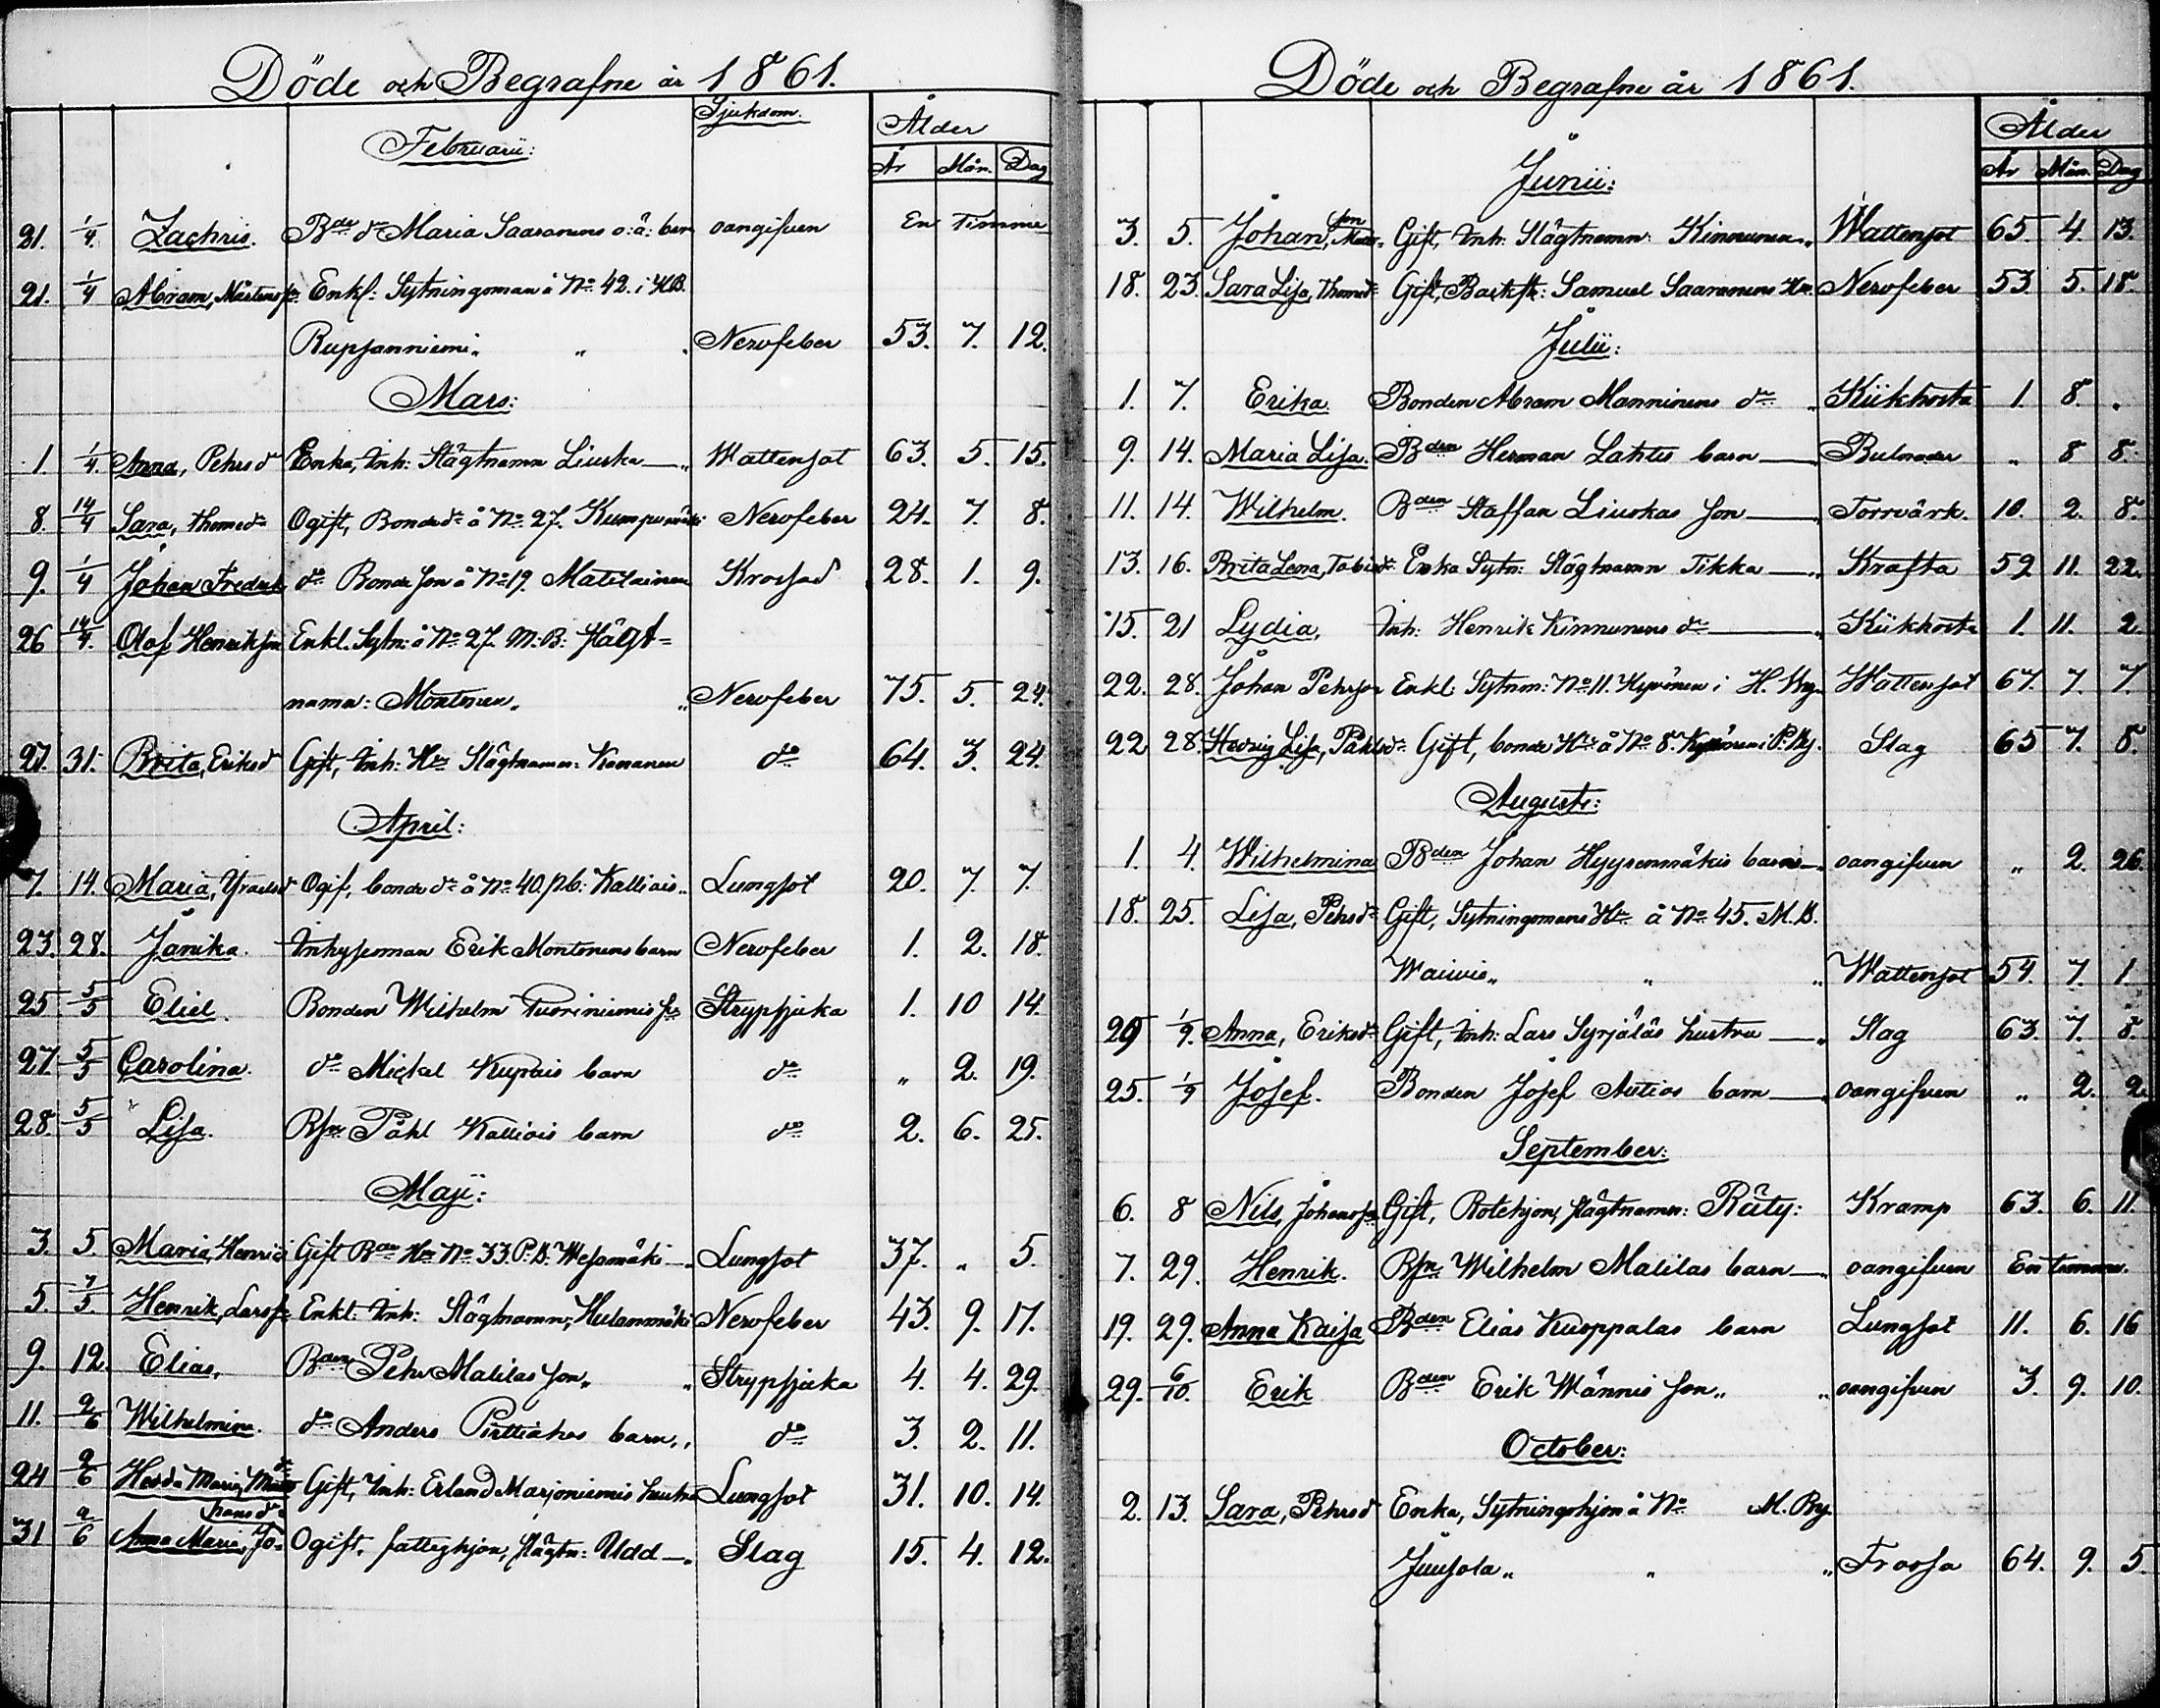 Döde och Begrafne år 1861.
Sjukdom. Ålder
Februarii:
År Mån. Dag
21. 1/4 Zachris. Bde dr Maria Saaranens o: ä: barn oangifven En Timme
21. 1/4 Abram, Mårtensson Enkl: Sytningsman å No 42. i HB.
Rupsanniemi „ „ Nervfeber 53. 7. 12.
Mars:
1. 1/4. Anna, Pehrsd Enka, Inh: Slägtnamn Liuska — „ Wattensot 63. 5. 15.
8. 14/4 Sara, Thomasdr Ogift, Bondedr å No 27. Kumpumäki Nervfeber 24. 7. 8.
9. 1/4 Johan Fredrik do Bonde son å No 19. Matilainen Krossad 28. 1. 9.
26 14/4. Olof Henrikson Enkl. Sytn: å No 27. M. B: slägt-
namn: Montonen „ „ Nervfeber 75. 5. 24.
27. 31. Brita, Eriksd Gift, Inh: Hu Slägtnamn: Kananen do 64. 3. 24.
April:
7. 14. Maria, Israelsd Ogif, bonde dr å No 40. pb: Kalliais „ Lungsot 20. 7. 7.
23. 28. Janika. Inhysesman Erik Montonens barn Nervfeber 1. 2. 18.
25 5/5 Eliel. Bonden Wilhelm Tuoriniemis son Strypsjuka 1. 10 14.
27. 5/5 Carolina. do Mickel Kupais barn do „ 2. 19.
28. 5/5 Lisa. Bsn Påhl Kalliois barn do 2. 6. 25.
Maji:
3. 5. Maria, Henricsd Gift Bde Hu No 33. P. B. Wesamäki — „ Lungsot 37. „ 5.
5. 7/5 Henrik, Larsson Enkl. Inh: Slägtnamn; Hulanmäki Nervfeber 43. 9. 17.
9. 12. Elias, Bden Pehr Matilas son „ „ Strypsjuka 4. 4. 29.
11. 2/6 Wilhelmina. do Anders Pirttiahos barn „ do 3. 2. 11.
24 2/6 Hedda Maria, Gift, Inh: Erland Marjoniemis hustru Lungsot 31. 10. 14.
hansd
31 2/6 Anna Maria, Jo- Ogift, fattighjon, slägtn: Udd — „ Slag 15. 4. 12.
Döde och Begrafne år 1861.
Ålder
År Mån. Dag
Junii:
3. 5. Johan, Matsson Gift, Inh: Slägtnamn: Kinnunen „ Wattensot 65. 4. 13.
18. 23. Sara Lisa, Thomasdr Gift, Backst: Samuel Saaranens Hu. Nervfeber 53. 5. 18.
Julii:
1. 7. Erika. Bonden Abram Manninens dr „ Kikhosta 1. 8. „
9. 14. Maria Lisa. Bden Herman Lahtis barn — Bulnader „ 8 8.
11. 14. Wilhelm. Bden Staffan Liuskas son — Torrvärk. 10. 2. 8.
13. 16. Brita Lena, Tobiedr Enka Sytn: Slägtnamn Tikka — „ Kräfta 52 11. 22.
15. 21 Lydia, Inh: Henrik Kinnunens dr — „ Kikhosta 1. 11. 2.
22. 28. Johan Pehrson Enkl: Sytnm: No 11. Hyvönen i H. By. Wattensot 67. 7. 7.
22 28. Hedvig Lisa, Påhlsdr Gift, bonde Hu å No 8. Kyrönen i P. By. Slag 65 7. 8.
Augusti:
1. 4. Wilhelmina Bden Johan Hyyrenmäkis barn — „ oangifven „ 2. 26.
18. 25. Lisa, Pehrsdr Gift, Sytningsmans Hu å No 45. M. B.
Waivis „ „ „ Wattensot 54. 7. 1
20 1/9. Anna, Eriksdr Gift, Inh: Lars Syrjäläs hustru — „ Slag 63. 7. 8.
25. 1/9 Josef. Bonden Josef Autios barn — oangifven „ 2. 2.
September:
6. 8 Nils, Johansson Gift, Rotehjon, slägtnamn: Räty: Kramp 63. 6. 11.
7. 29. Henrik. Bsn Wilhelm Matilas barn — oangifven En timme.
19. 29. Anna Kaisa Bden Elias Kuoppalas barn Lungsot 11. 6. 16
29. 6/10. Erik Bden Erik Männis son „ „ oangifven 3. 9. 10.
October:
2. 13. Sara, Pehrsd Enka, Sytningshjon å No M. By.
Juusola „ „ „ Frossa 64. 9. 5.